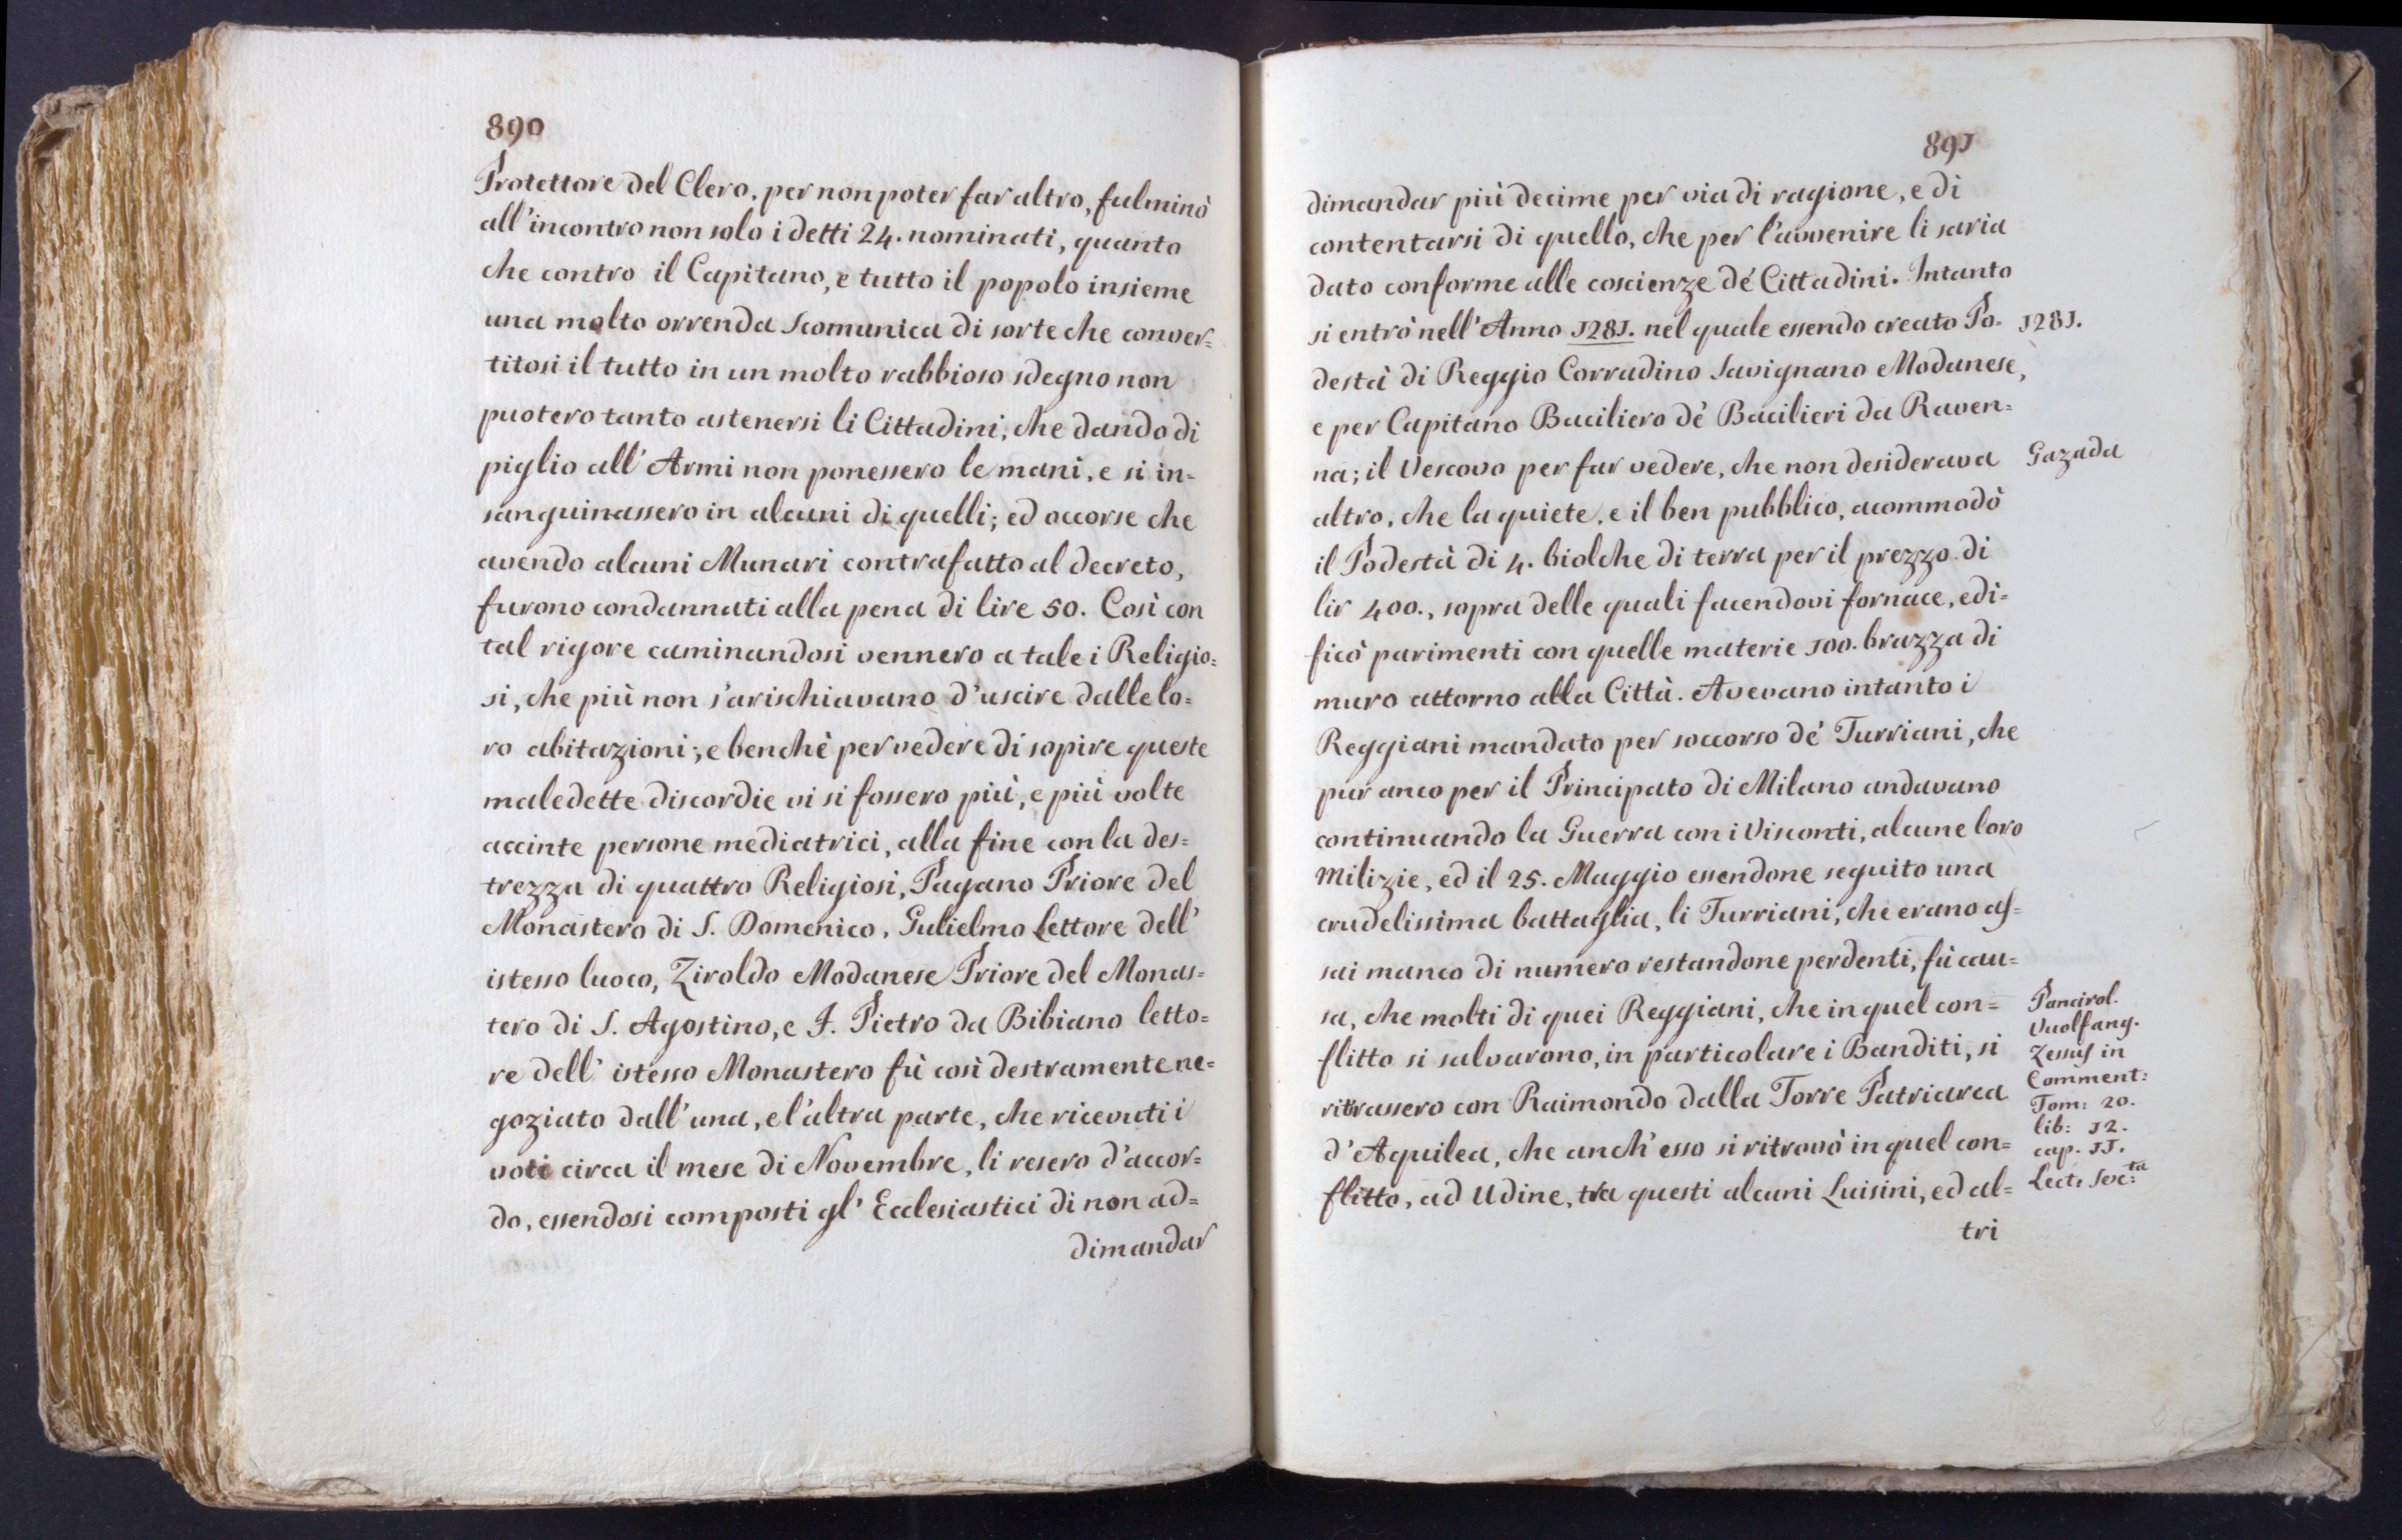 890
Protettore del Clero, per non poter far altro, fulminò
all'incontro non solo i detti 24. nominati, quanto
che contro il Capitano, e tutto il popolo insieme
una molto orrenda Scomunica di sorte che conver=
titosi il tutto in un molto rabbioso sdegno non
puotero tanto astenersi li Cittadini, che dando di
piglio all'Armi non ponessero le mani, e si in=
sanguinassero in alcuni di quelli; ed occorse che
avendo alcuni Munari contrafatto al decreto,
furono condannati alla pena di lire 50. Così con
tal rigore caminandosi vennero a tale i Religio=
si, che più non s'arischiavano d'uscire dalle lo=
ro abitazioni; e benchè per vedere di sopire queste
maledette discordie vi si fossero più, e più volte
accinte persone mediatrici, alla fine con la des=
trezza di quattro Religiosi, Pagano Priore del
Monastero di S. Domenico, Gulielmo Lettore dell'
istesso luoco, Ziroldo Modanese Priore del Monas=
tero di S. Agostino, e F. Pietro da Bibiano letto=
re dell' istesso Monastero fù così destramente ne=
goziato dall'una, e l'altra parte, che ricevuti i
voti circa il mese di Novembre, li resero d'accor=
do, essendosi composti gl' Ecclesiastici di non ad=
dimandar
891
dimandar più decime per via di ragione, e di
contentarsi di quello, che per l'avvenire li saria
dato conforme alle coscienze de' Cittadini. Intanto
si entrò nell'Anno 1281. nel quale essendo creato Po=
1281.
destà di Reggio Corradino Savignano Modanese,
e per Capitano Baciliero de' Bacilieri da Raven=
na; il Vescovo per far vedere, che non desiderava
Gazada
altro, che la quiete, e il ben pubblico, acommodò
il Podestà di 4. biolche di terra per il prezzo di
lir 400., sopra delle quali facendovi fornace, edi=
ficò parimenti con quelle materie 100. brazza di
muro attorno alla Città. Avevano intanto i
Reggiani mandato per soccorso de' Turriani, che
pur anco per il Principato di Milano andavano
continuando la Guerra con i Visconti, alcune loro
Milizie, ed il 25. Maggio essendone seguito una
crudelissima battaglia, li Turriani, che erano as=
sai manco di numero restandone perdenti, fù cau=
sa, che molti di quei Reggiani, che in quel con=
flitto si salvarono, in particolare i Banditi, si
ritrassero con Raimondo dalla Torre Patriarca
d'Aquilea, che anch'esso si ritrovò in quel con=
flitto, ad Udine, tra questi alcuni Luisini, ed al=
tri
Pancirol.
Vuolfang.
Zessus in
Comment:
Tom: 20.
lib: 12.
cap. 11.
Lect: Sec:ta